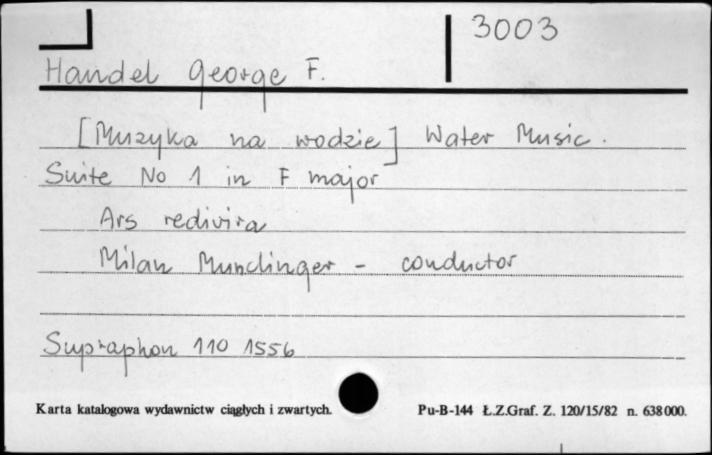 3003
Handel George F.
[Muzyka na wodzie] Water Music.
Suite No 1 in F major
Ars rediviva
Milan Munclinger - conductor
Supraphon 110 1556
Karta katalogowa wydawnictw ciągłych i zwartych. Pu-B-144 Ł.Z.Graf. Z. 120/15/82 n. 638000.